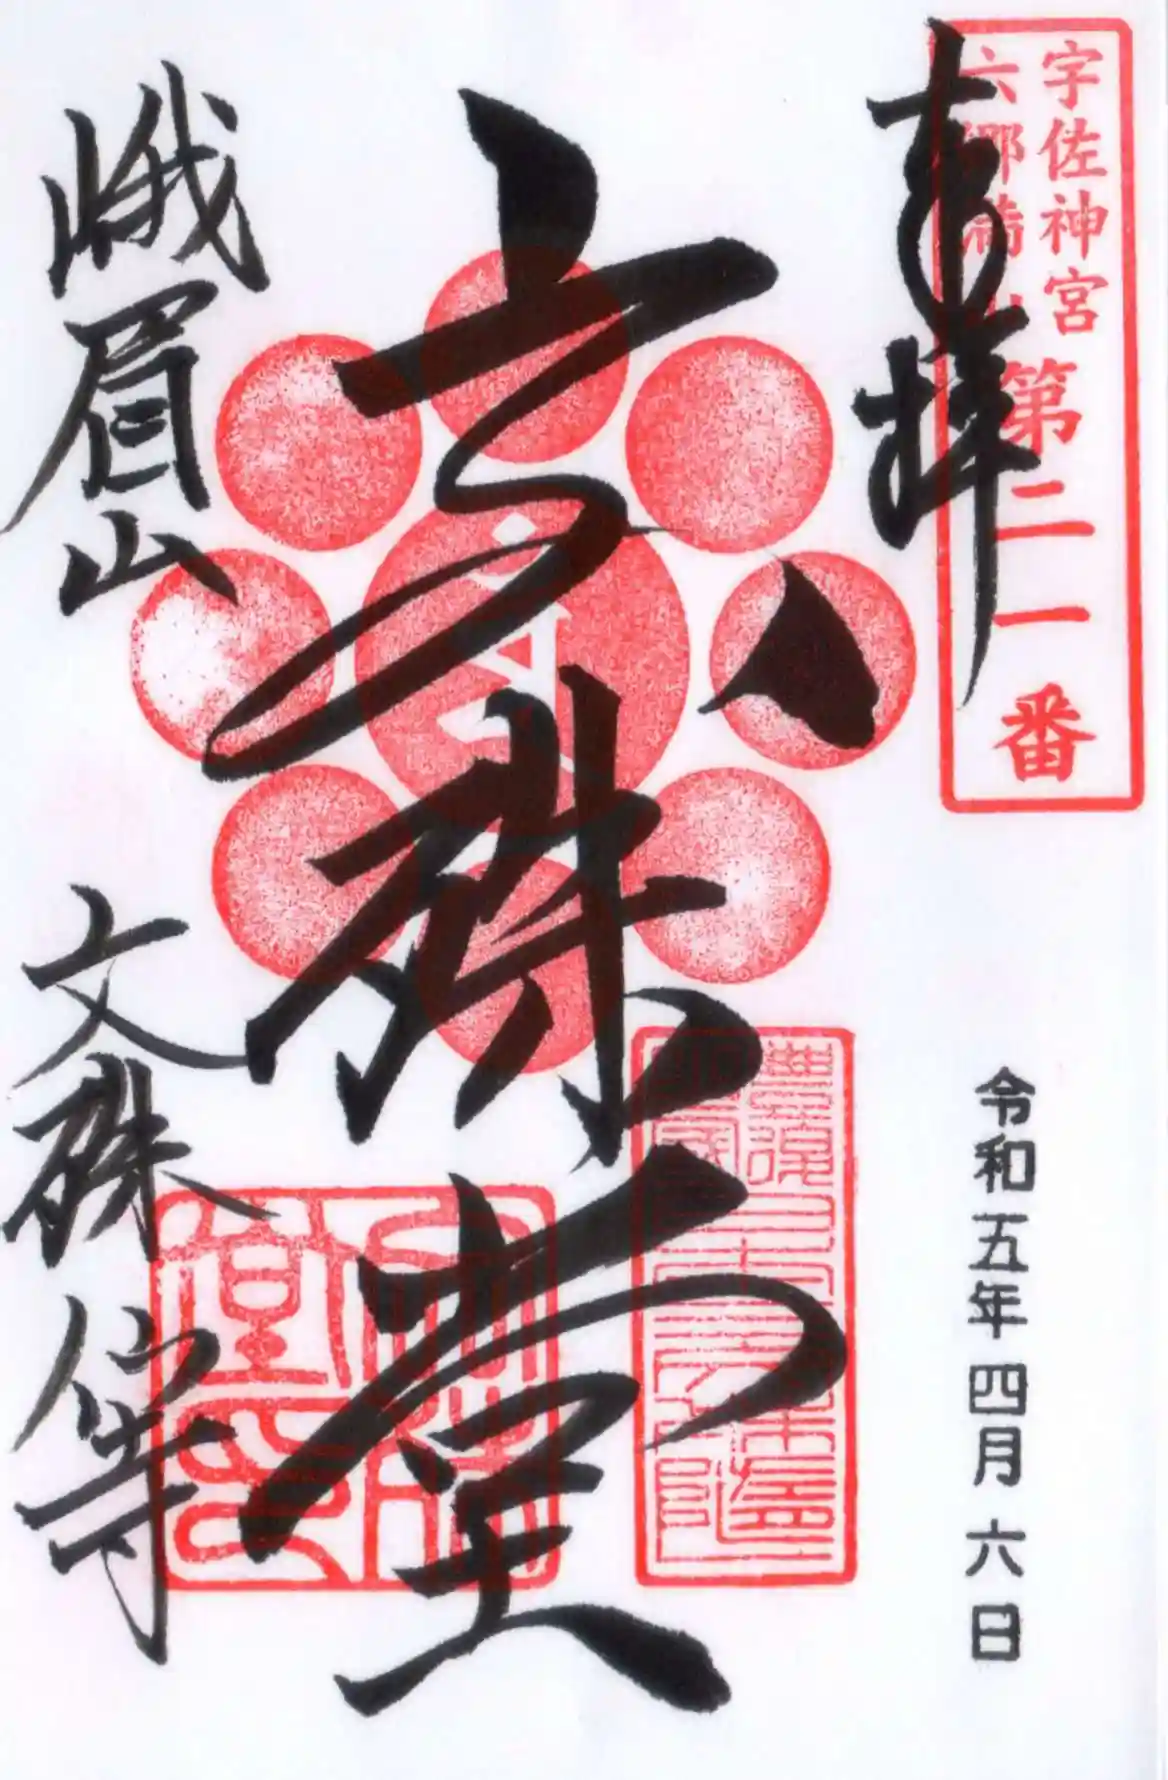 宇佐神宮
六郷満山
第二一番
奉拝
令和五年四月六日
文殊堂
峨眉山
文殊仙寺